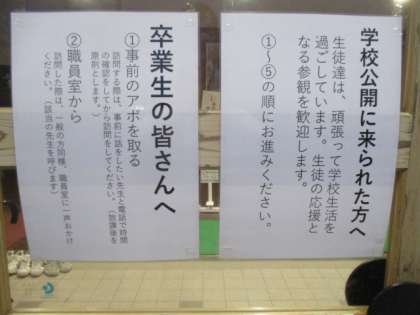 学校公開に来られた方へ
生徒達は、頑張って学校生活を
過ごしています。生徒の応援と
なる参観を歓迎します。
①～⑤の順にお進みください。
卒業生の皆さんへ
①事前のアポを取る
訪問する際は、事前に話をしたい先生と電話で時間
の確認をしてから訪問をしてください。（放課後を
原則とします。）
②職員室から
訪問した際は、一般の方同様、職員室に一声おかけ
ください。（該当の先生を呼びます）